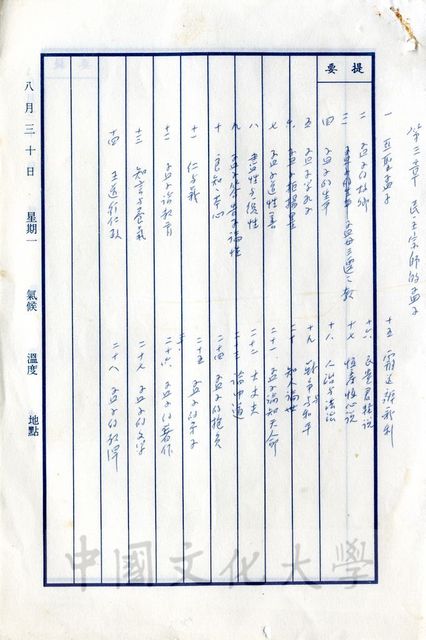 提要
第三章 民主宗師的孟子
一 亞聖孟子
二 孟子的故鄉
三 孟子的母 孟母三遷之教
四 孟子的生
五 孟子學孔子
六 孟子拒楊墨
七 孟子道性善
八 盡性與復性
九 孟子與告子論性
十 良知、本心
十一 仁與義
十二 孟子談教育
十三 知言與養氣
十四 王道行仁政
十五 霸道辨義利
十六 民貴君輕說
十七 恆產恆心說
十八 人治與法治
十九 戰爭與和平
二十 知人論世
二十一 孟子論知天命
二十二 大丈夫
二十三 論中道
二十四 孟子的抱負
二十五 孟子的弟子
二十六 孟子的著作
二十七 孟子的文學
二十八 孟子的
八月三十日 星期一 氣候 溫度 地點
中國文化大學